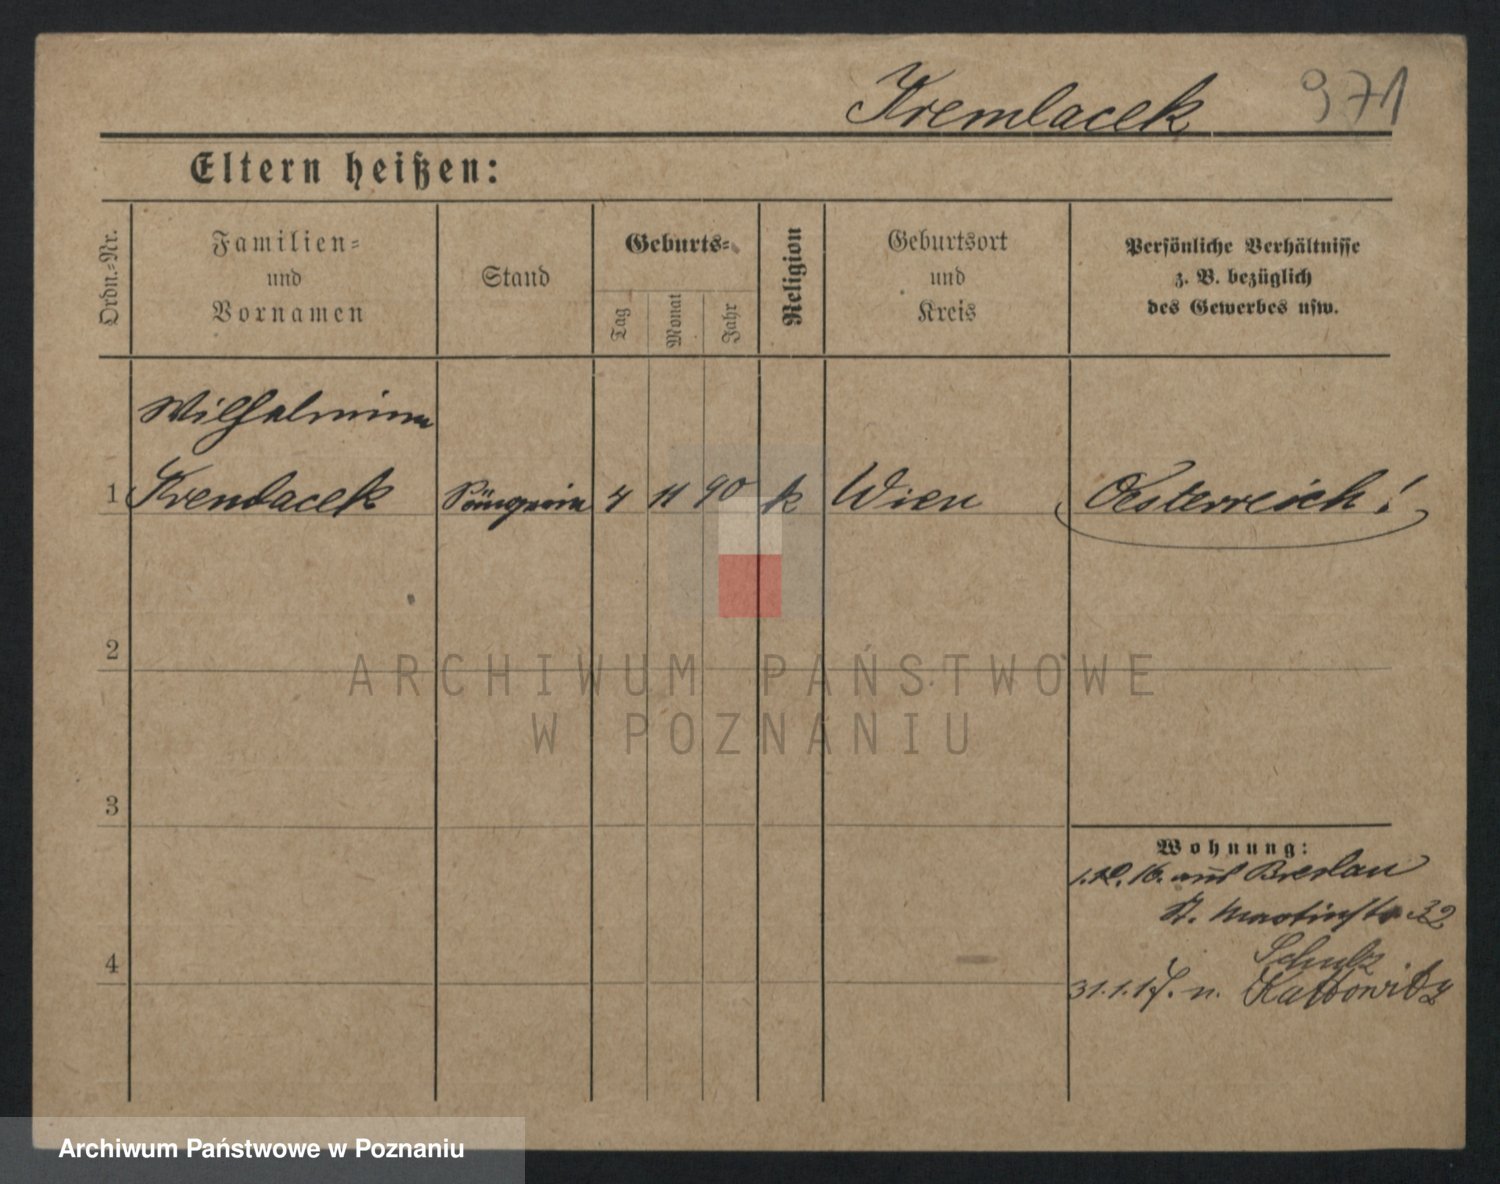 Kremlacek 971
Eltern heißen:
Ordn.-Nr.
Familien-
und
Vornamen
Stand
Geburts-
Tag
Monat
Jahr
Religion
Geburtsort
und
Kreis
Persönliche Verhältnisse
z. B. bezüglich
des Gewerbes usw.
Wilhelmine
1 Kremlacek Sängerin 4 11 90 k Wien Oesterreich!
2
ARCHIWUM PAŃSTWOWE
W POZNANIU
3
Wohnung:
1.10.16. aus Breslau
St. Martinstr 32
Schulz
4
31.1.17. n. Kattowitz
Archiwum Państwowe w Poznaniu